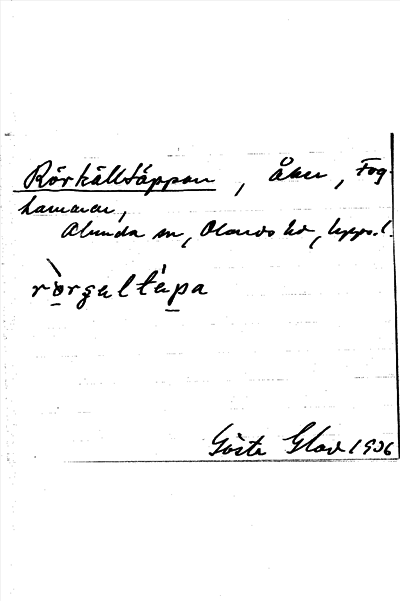 Rörkälltäppan, Åker, Fog-
hammar,
Alunda sn, Olands hd, Upps. l.
ròrgæltápa
Gösta Glad 1936